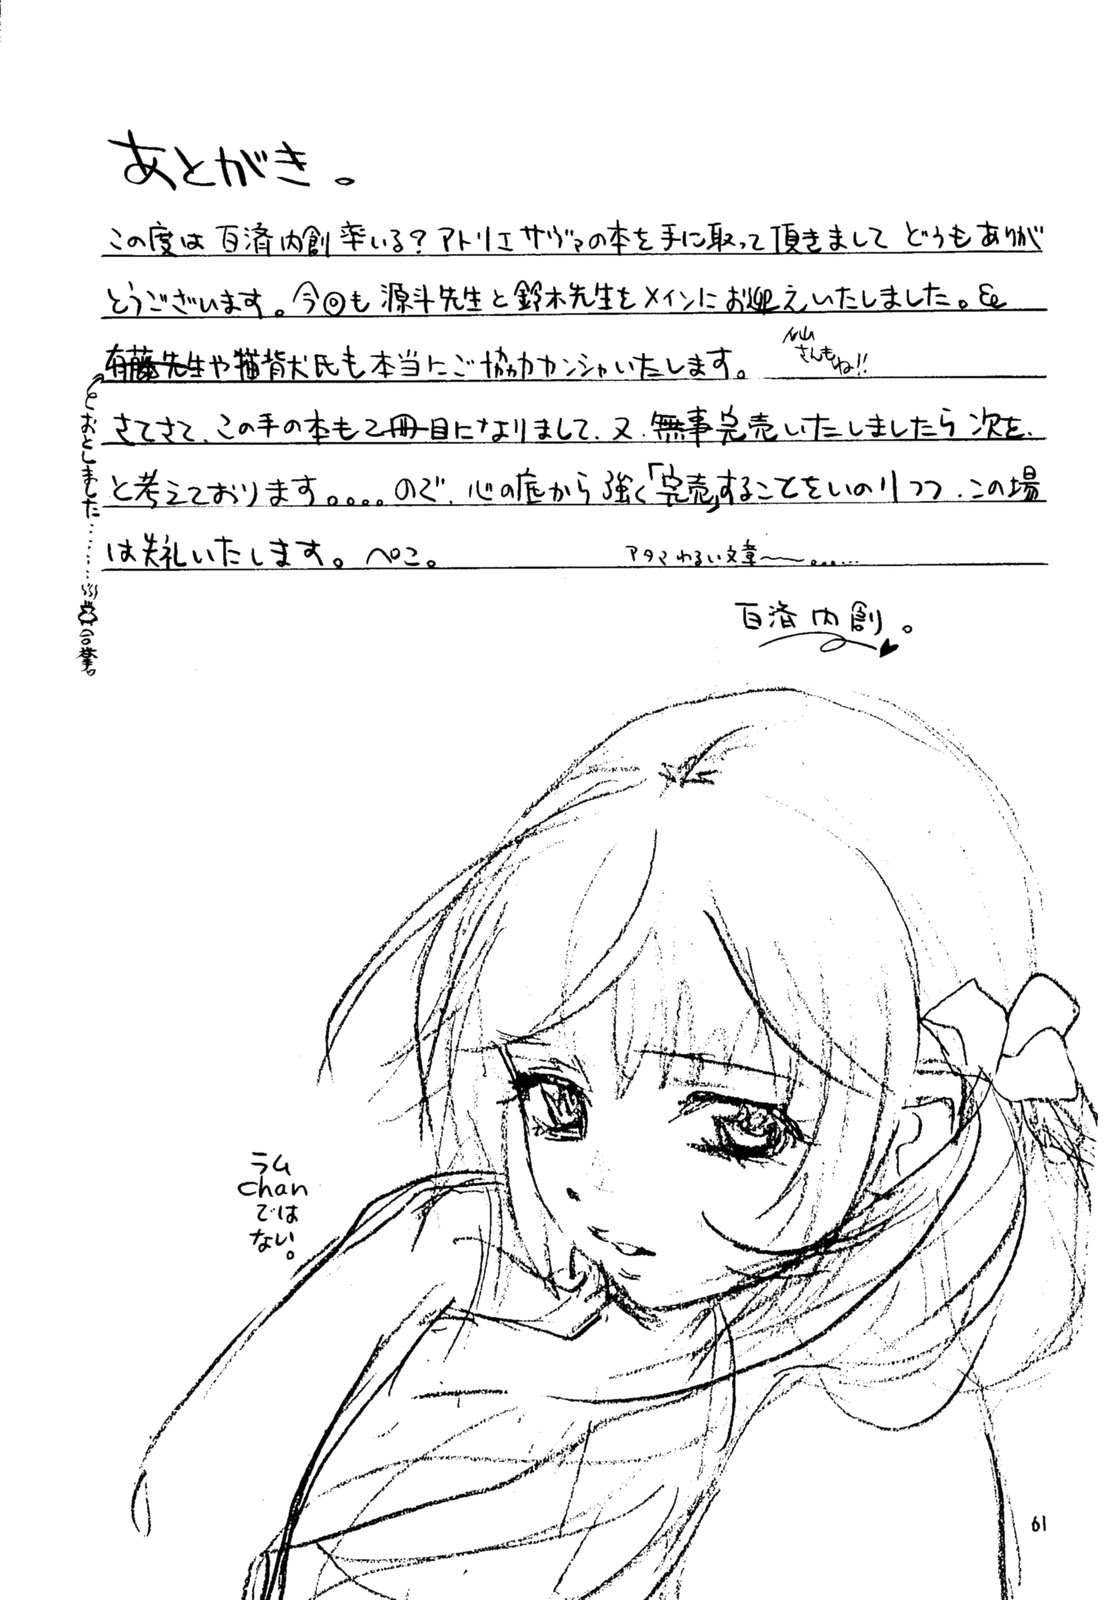 あとがき。
この度は百済内創率いる?アトリエサヴァの本を手に取って頂きましてどうもありが
とうございます。今回も源斗先生と鈴木先生をメインにお迎えいたしました。&
有藤先生や猫背犬氏も本当にご協力カンシャいたします。
さんもね!!
さてさて、この手の本も2冊目になりまして、又、無事完売いたしましたら次を、
と考えております。。。。ので、心の底から強く「完売」することをいのりつつ、この場
は失礼いたします。ぺこ。
アタマわるい文章〜〜。。……
とおとしました……
合掌。
百済内創。
ラム
chan
では
ない。
61